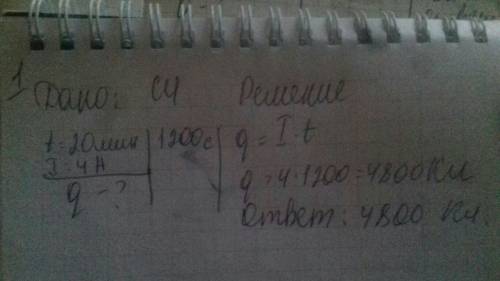 1
Дано: СИ Решение
t = 20 мин 1200с q = I · t
I = 4 А
q = 4 · 1200 = 4800 Кл
q - ?
Ответ: 4800 Кл.